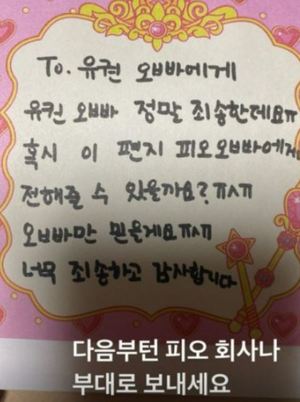 To. 유권 오빠에게
유권 오빠 정말 죄송한데요ㅠ
혹시 이 편지 피오오빠에게
전해줄 수 있을까요? ㅠㅅㅠ
오빠만 믿을게요ㅠㅅㅠ
너무 죄송하고 감사합니다
다음부턴 피오 회사나
부대로 보내세요